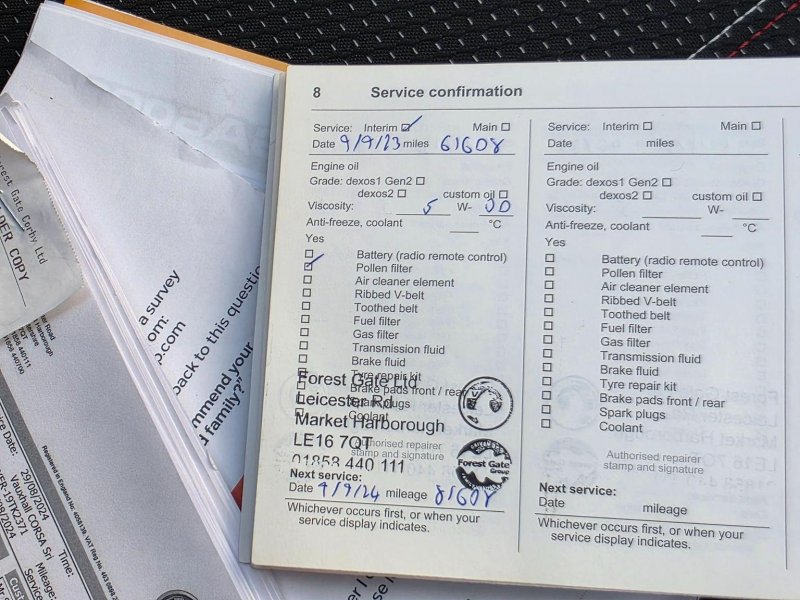 8 Service confirmation
Service: Interim Main
Date 9/9/23 miles 61608
Engine oil
Grade: dexos1 Gen2
dexos2 custom oil
Viscosity: 5 W- 30
Anti-freeze, coolant °C
Yes
Battery (radio remote control)
Pollen filter
Air cleaner element
Ribbed V-belt
Toothed belt
Fuel filter
Gas filter
Transmission fluid
Brake fluid
Tyre repair kit
Brake pads front / rear
Spark plugs
Coolant
Forest Gate Ltd
Leicester Rd
Market Harborough
LE16 7QT
01858 440 111
Authorised repairer
stamp and signature
Forest Gate
Group
Next service:
Date 9/9/24 mileage 81608
Whichever occurs first, or when your
service display indicates.
Service: Interim Main
Date miles
Engine oil
Grade: dexos1 Gen2
dexos2 custom oil
Viscosity: W-
Anti-freeze, coolant °C
Yes
Battery (radio remote control)
Pollen filter
Air cleaner element
Ribbed V-belt
Toothed belt
Fuel filter
Gas filter
Transmission fluid
Brake fluid
Tyre repair kit
Brake pads front / rear
Spark plugs
Coolant
Authorised repairer
stamp and signature
Next service:
Date mileage
Whichever occurs first, or when your
service display indicates.
a survey
om:
p.com
back to this questio
mmend your
d family?"
Forest Gate Corby Ltd
DER COPY
Road
7QT
01858 440111
01858 440700
Registered in England No: 4058139. VAT Reg No.
Date: 29/08/2024 Time:
Vauxhall CORSA Sri
Mileage: